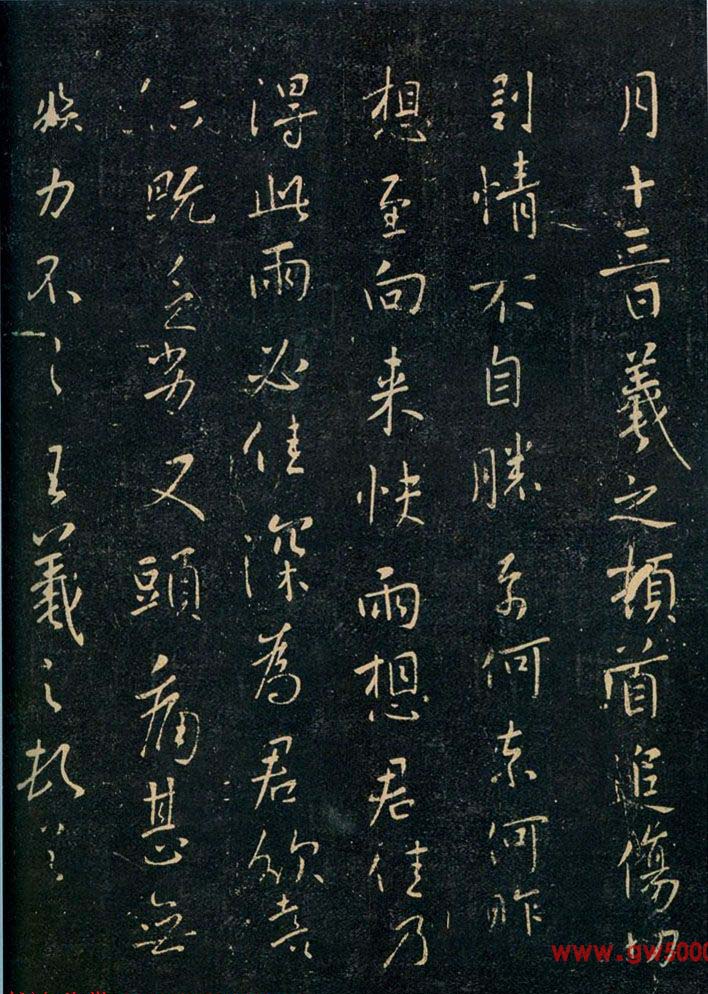 月十三日羲之頓首追傷切
剝情不自勝奈何奈何昨
想至向来快雨想君佳乃
得此雨必佳深為君欣喜
既乏劣又頭痛甚無
力不一一王羲之頓首